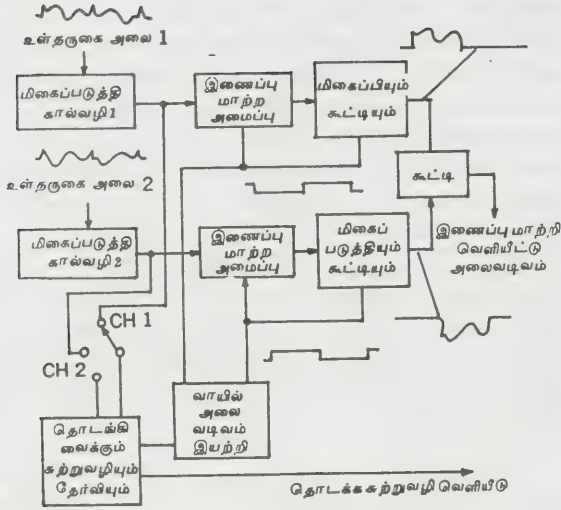 உள்தருகை அலை 1
மிகைப்படுத்தி
கால்வழி 1
இணைப்பு
மாற்ற
அமைப்பு
மிகைப்பியும்
கூட்டியும்
கூட்டி
உள்தருகை அலை 2
மிகைப்படுத்தி
கால்வழி 2
இணைப்பு
மாற்ற
அமைப்பு
மிகைப்
படுத்தியும்
கூட்டியும்
இணைப்பு மாற்றி
வெளியீட்டு
அலைவடிவம்
CH 1
CH 2
வாயில்
அலை
வடிவம்
இயற்றி
தொடங்கி
வைக்கும்
சுற்றுவழியும்
தேர்வியும்
தொடக்க சுற்றுவழி வெளியீடு